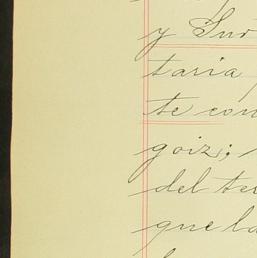 y Sur
taria
te con
goiz;
del te
que la